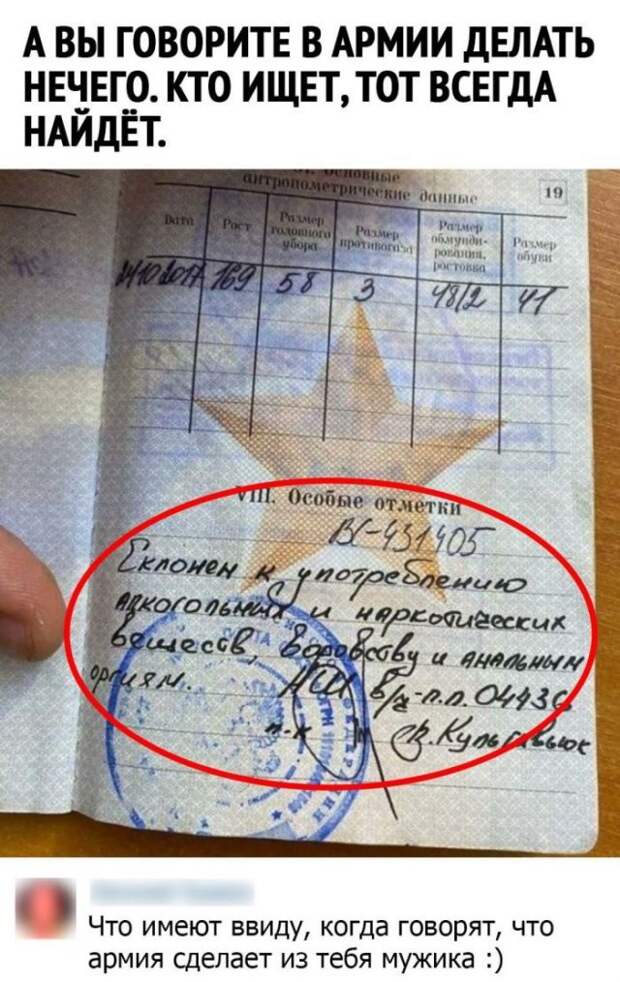 А ВЫ ГОВОРИТЕ В АРМИИ ДЕЛАТЬ
НЕЧЕГО. КТО ИЩЕТ, ТОТ ВСЕГДА
НАЙДЁТ.
основные
антропометрические данные
19
Дата Рост Размер головного убора Размер противогаза Размер обмунди- рования, ростовка Размер обуви
24.10.2017 169 58 3 48/2 41
VIII. Особые отметки
ВС-431405
Склонен к употреблению
алкогольных и наркотических
веществ, воровству и анальным
оргиям.
в/ч-п.п. 04436
п-к
Что имеют ввиду, когда говорят, что
армия сделает из тебя мужика :)